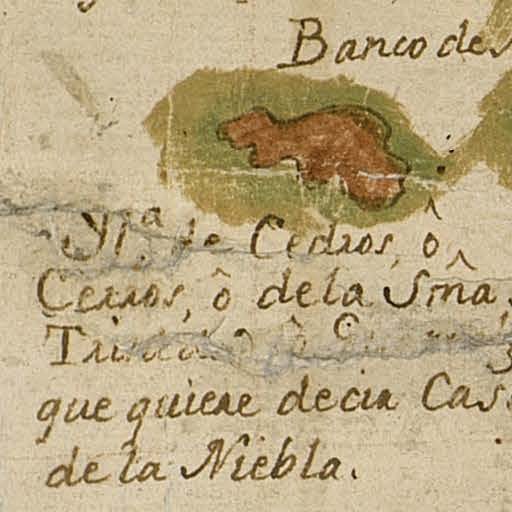 Banco de
Ysª de Cedros, ô
Cerros, ô de la Smâ
Trinidad, ô
que quiere decir Cas
de la Niebla.